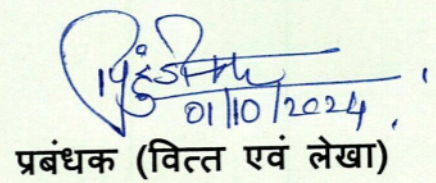 01/10/2024
प्रबंधक (वित्त एवं लेखा)